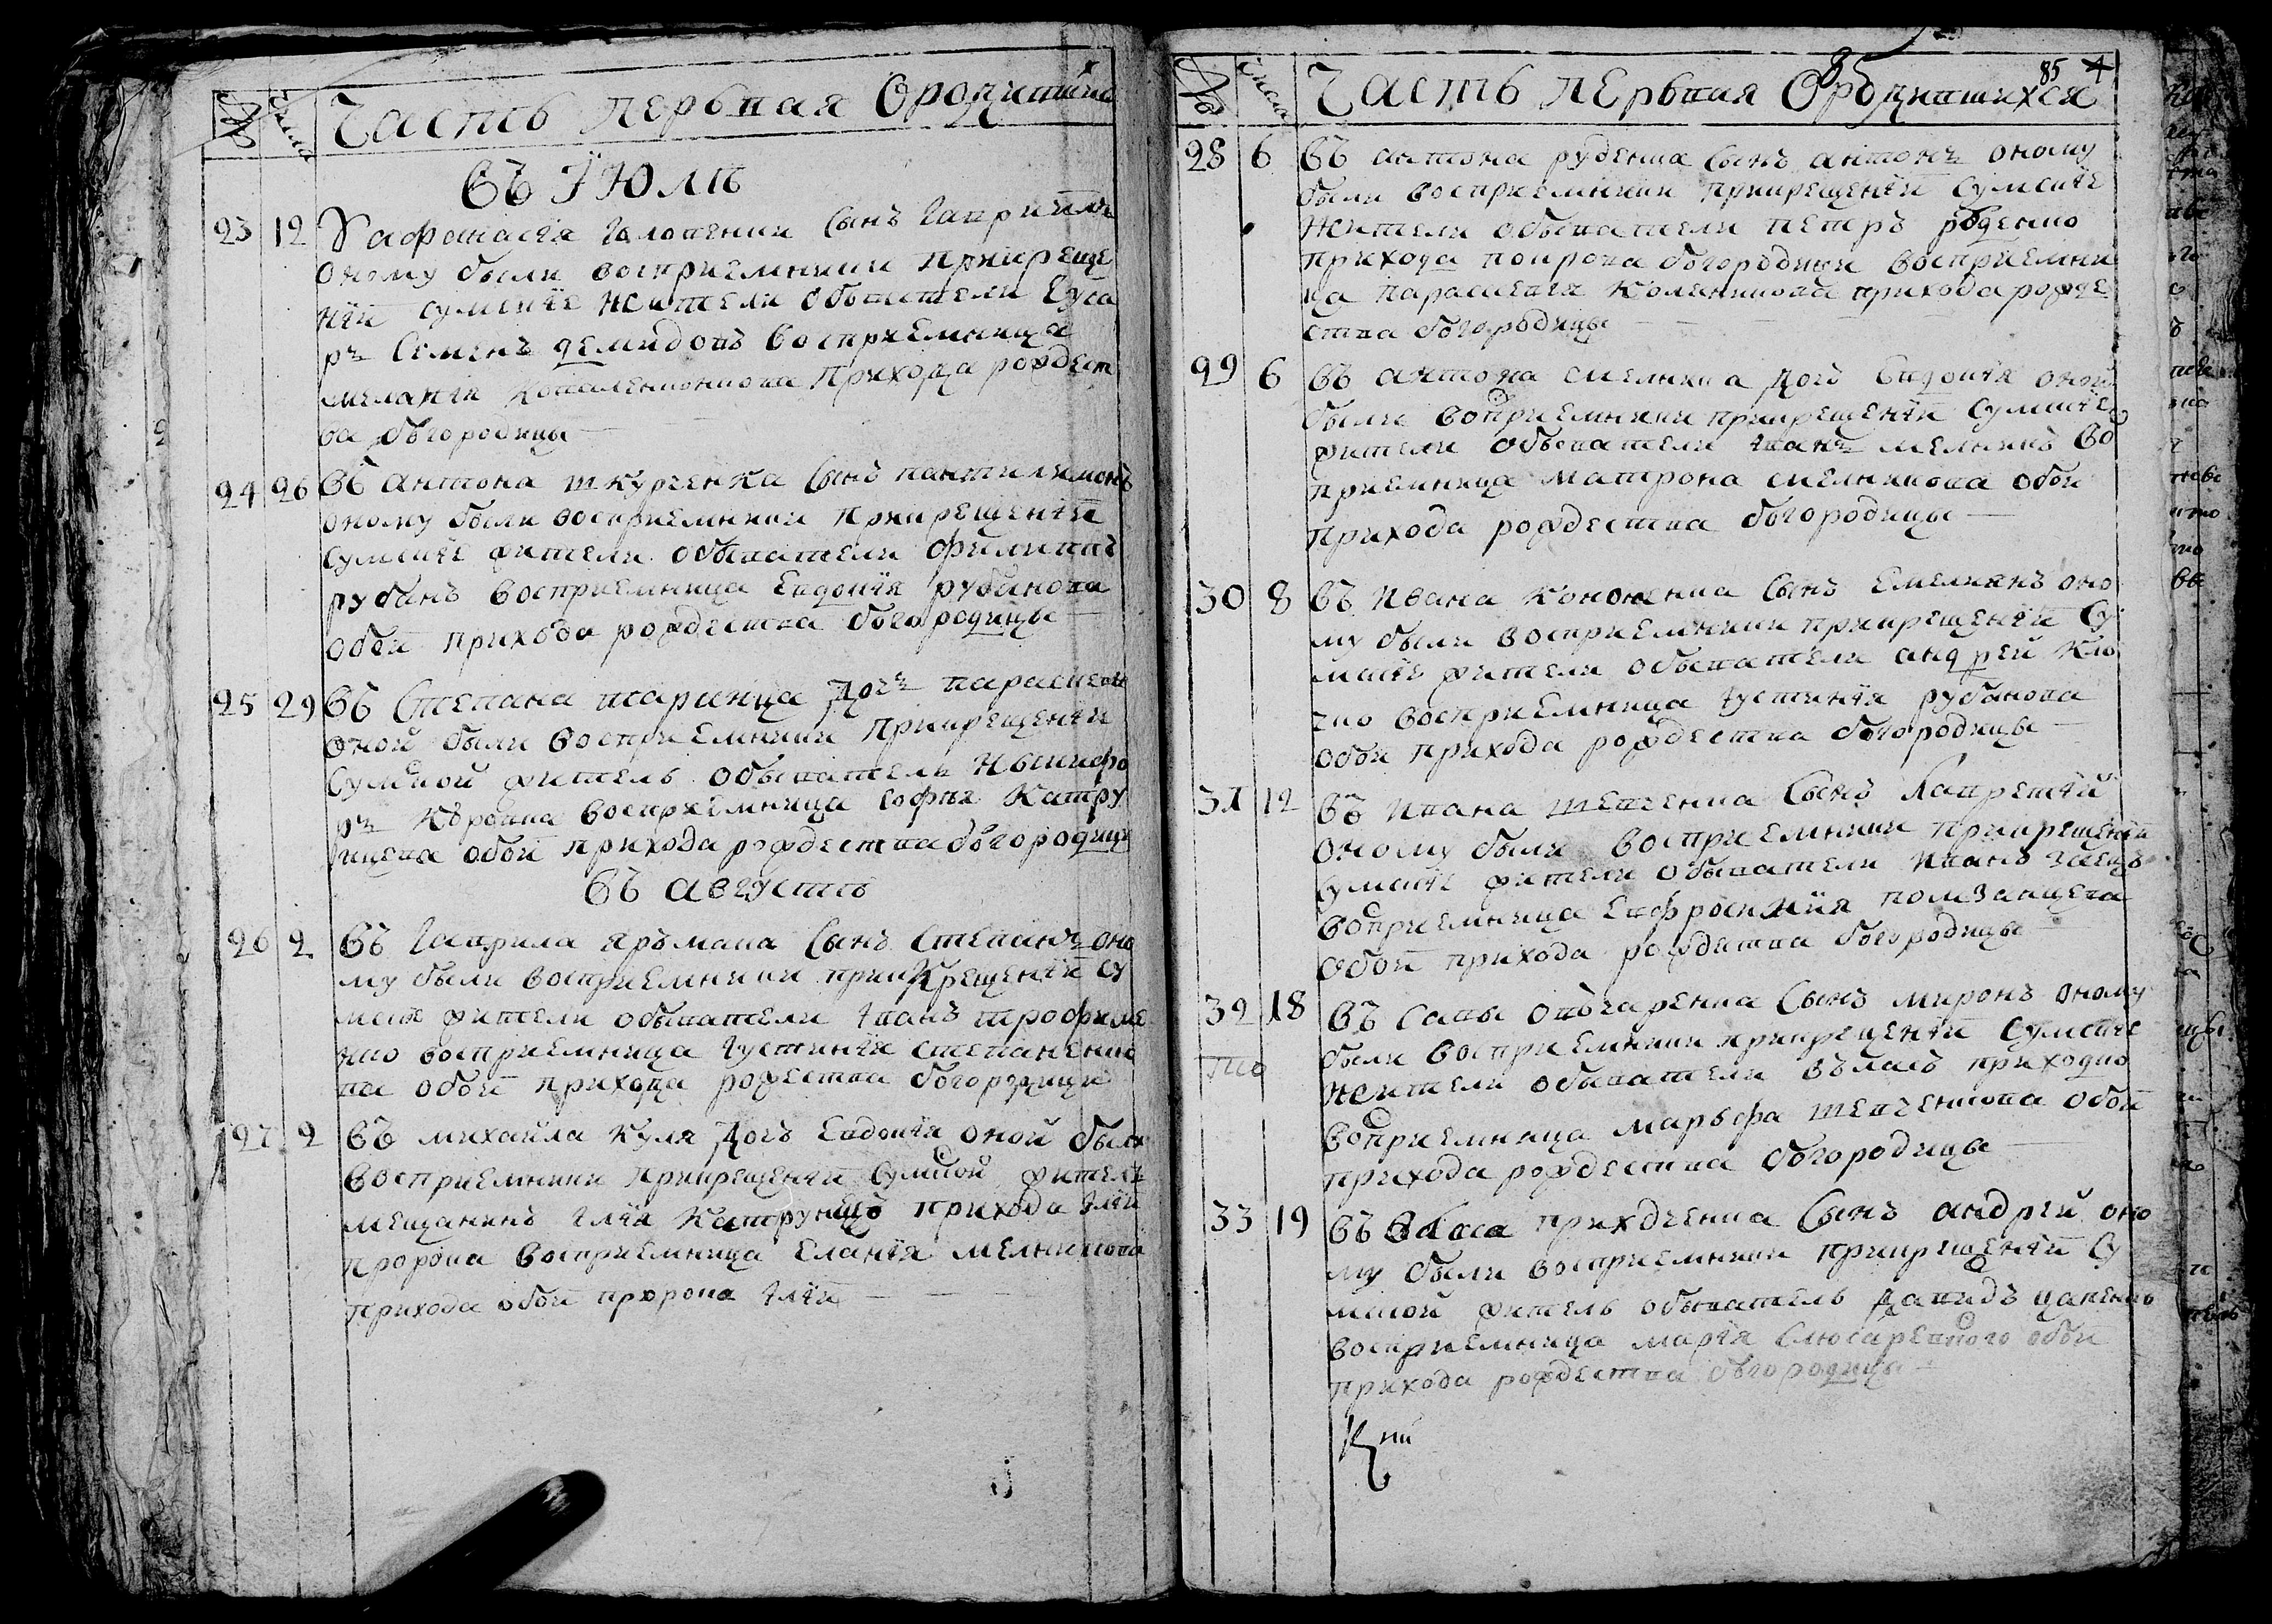 № числа Часть первая о родившихся
въ Июлѣ
23 12 У афанасия сынъ гавриилъ
оному были восприемники при креще
нїи сумские жители обыватели
ръ Семенъ демидовъ восприемница
мелания прихода рождест
ва богородицы
24 26 въ антона шкурченка сынъ пантилимонъ
оному были восприемники при крещенїи
сумские жители обыватели филиппъ
рубанъ восприемница евдокия рубанова
обои прихода рождества богородицы
25 29 въ Степана дочь параскевия
оной были восприемники при крещенїи
сумской житель обыватель никифо
ръ восприемница софия катру
щева обои прихода рождества богородицы
въ августѣ
26 2 въ гаврила сынъ степанъ оно
му были восприемники при крещенїи су
мские жители обыватели иванъ трофиме
нко восприемница иустиния степаненко
ва обои прихода рождества богородицы
27 2 въ михайла куля дочь евдокия оной были
восприемники при крещенїи сумской житель
мещанинъ илия катрунъ прихода илии
пророка восприемница мелникова
прихода обои пророка илии
85 4
№ числа Часть первая о родившихся
28 6 въ антона руденка сынъ антонъ оному
были восприемники при крещенїи сумские
жители обыватели петръ руденко
прихода покрова богородици восприемни
ца параскевия прихода рожде
ства богородицы
29 6 въ антона мелника дочь евдокия оной
были восприемники при крещенїи сумские
жители обыватели иванъ мелникъ вос
приемница матрона мелникова обои
прихода рождества богородицы
30 8 въ ивана кононенка сынъ емелиянъ оно
му были восприемники при крещенїи су
мские жители обыватели андрей клю
чко восприемница иустиния рубанова
обои прихода рождества богородицы
31 12 въ ивана шевченка сынъ лаврентий
оному были восприемники при крещенїи
сумские жители обыватели иванъ заецъ
восприемница евфросиния
обои прихода рождества богородицы
32 18 въ савы сынъ миронъ оному
были восприемники при крещенїи сумские
жители обыватели власъ приходко
восприемница марьфа шевченкова обои
прихода рождества богородицы
33 19 въ власа приходченка сынъ андрей оно
му были восприемники при крещенїи су
мской житель обыватель давидъ
восприемница мария обои
прихода рождества богородицы